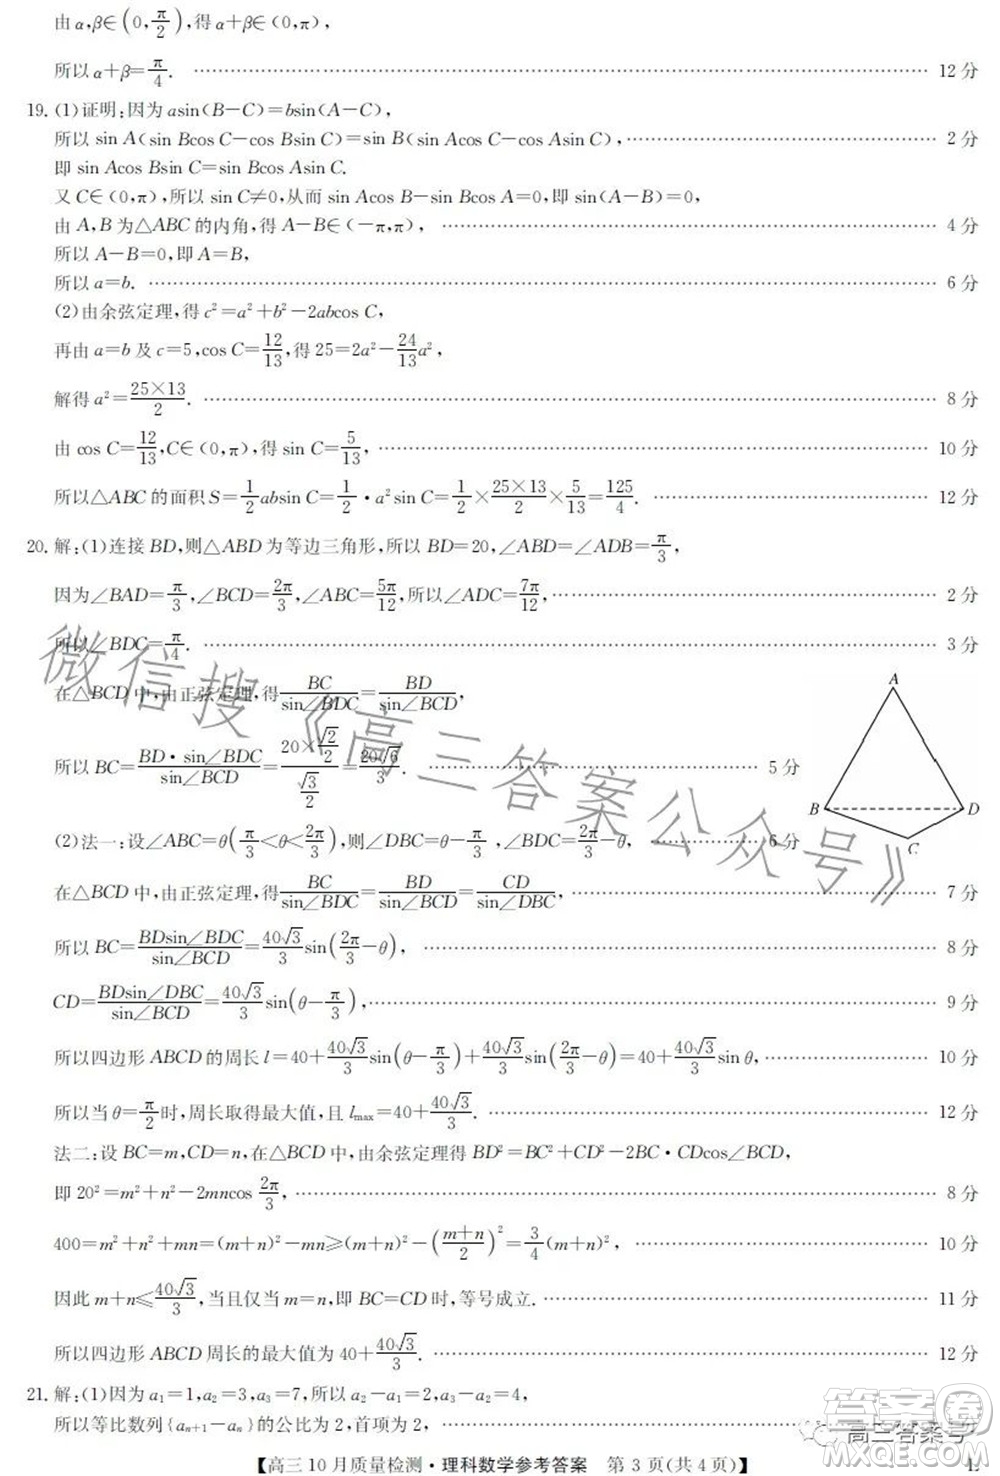 由 α,β∈(0,π/2),得 α+β∈(0,π),
所以 α+β=π/4. …… 12 分
19. (1)证明:因为 asin(B−C)=bsin(A−C),
所以 sin A(sin Bcos C−cos Bsin C)=sin B(sin Acos C−cos Asin C), …… 2 分
即 sin Acos Bsin C=sin Bcos Asin C.
又 C∈(0,π),所以 sin C≠0,从而 sin Acos B−sin Bcos A=0,即 sin(A−B)=0,
由 A,B 为△ABC 的内角,得 A−B∈(−π,π), …… 4 分
所以 A−B=0,即 A=B,
所以 a=b. …… 6 分
(2)由余弦定理,得 c²=a²+b²−2abcos C,
再由 a=b 及 c=5,cos C=12/13,得 25=2a²−24/13 a²,
解得 a²=25×13/2. …… 8 分
由 cos C=12/13,C∈(0,π),得 sin C=5/13, …… 10 分
所以△ABC 的面积 S=1/2 absin C=1/2 • a² sin C=1/2×25×13/2×5/13=125/4. …… 12 分
20. 解:(1)连接 BD,则△ABD 为等边三角形,所以 BD=20,∠ABD=∠ADB=π/3,
因为∠BAD=π/3,∠BCD=2π/3,∠ABC=5π/12,所以∠ADC=7π/12, …… 2 分
所以∠BDC=π/4. …… 3 分
在△BCD 中,由正弦定理,得 BC/sin∠BDC=BD/sin∠BCD,
所以 BC=BD·sin∠BDC/sin∠BCD=(20×√2/2)/(√3/2)=20√6/3. …… 5 分
A
B
D
C
(2)法一:设∠ABC=θ(π/3<θ<2π/3),则∠DBC=θ−π/3,∠BDC=2π/3−θ, …… 6 分
在△BCD 中,由正弦定理,得 BC/sin∠BDC=BD/sin∠BCD=CD/sin∠DBC, …… 7 分
所以 BC=BDsin∠BDC/sin∠BCD=40√3/3 sin(2π/3−θ), …… 8 分
CD=BDsin∠DBC/sin∠BCD=40√3/3 sin(θ−π/3), …… 9 分
所以四边形 ABCD 的周长 l=40+40√3/3 sin(θ−π/3)+40√3/3 sin(2π/3−θ)=40+40√3/3 sin θ, …… 10 分
所以当 θ=π/2时,周长取得最大值,且 lmax=40+40√3/3. …… 12 分
法二:设 BC=m,CD=n,在△BCD 中,由余弦定理得 BD²=BC²+CD²−2BC·CDcos∠BCD,
即 20²=m²+n²−2mncos 2π/3, …… 8 分
400=m²+n²+mn=(m+n)²−mn≥(m+n)²−((m+n)/2)²=3/4(m+n)², …… 10 分
因此 m+n≤40√3/3,当且仅当 m=n,即 BC=CD 时,等号成立. …… 11 分
所以四边形 ABCD 周长的最大值为 40+40√3/3. …… 12 分
21. 解:(1)因为 a₁=1,a₂=3,a₃=7,所以 a₂−a₁=2,a₃−a₂=4,
所以等比数列{aₙ₊₁−aₙ}的公比为 2,首项为 2, ……
【高三 10 月质量检测·理科数学参考答案 第 3 页(共 4 页)】
L
微信搜《高三答案公众号》
高三答案号
答案圈
MXQE.COM